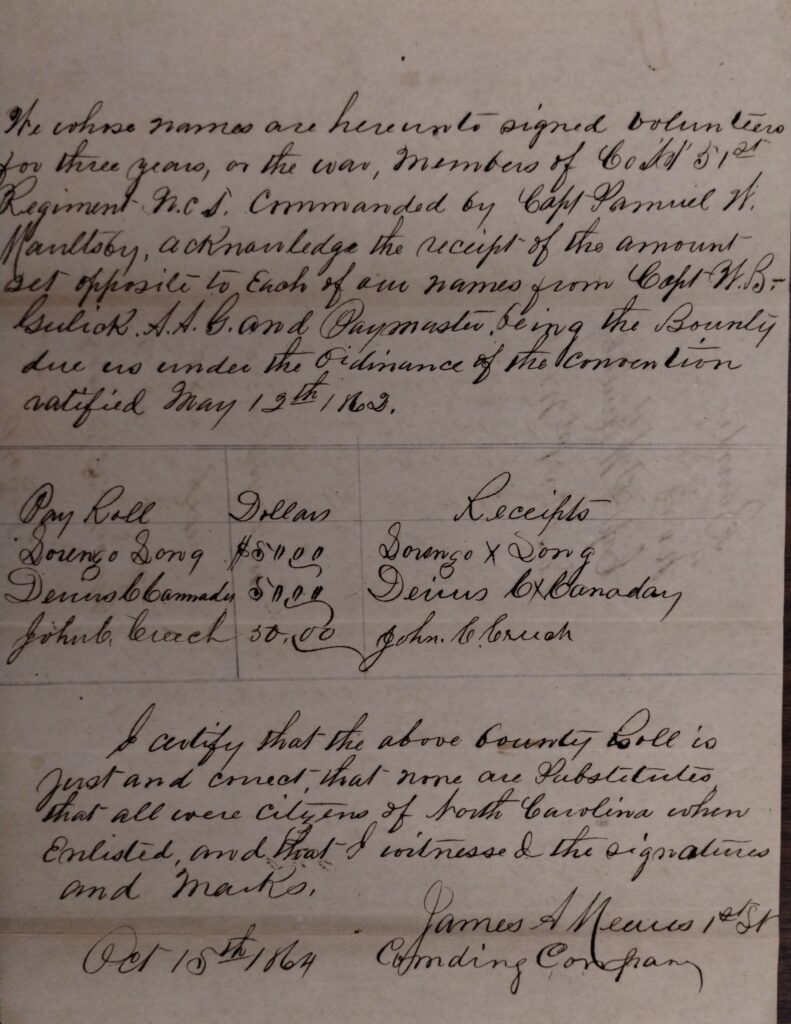 We whose names are hereunto signed volunteers
for three years, or the war, Members of Co "H" 51st
Regiment N.C.S. Commanded by Capt Samuel W.
Maultsby, acknowledge the receipt of the amount
set opposite to Each of our names from Capt W.B-
Gulick. A.A.G. and Paymaster, being the Bounty
due us under the Ordinance of the Convention
ratified May 12th 1862.
Pay Roll Dollars Receipts
Lorenzo Long $50.00 Lorenzo X Long
C Cannady 50.00 C X Canaday
John C. Creech 50.00 John. C. Creech
I certify that the above bounty Roll is
just and correct, that none are Substitutes,
that all were citizens of North Carolina when
Enlisted, and that I witnessed the signatures
and Marks.
James A Meares 1st Lt
Oct 15th 1864 Comding Company